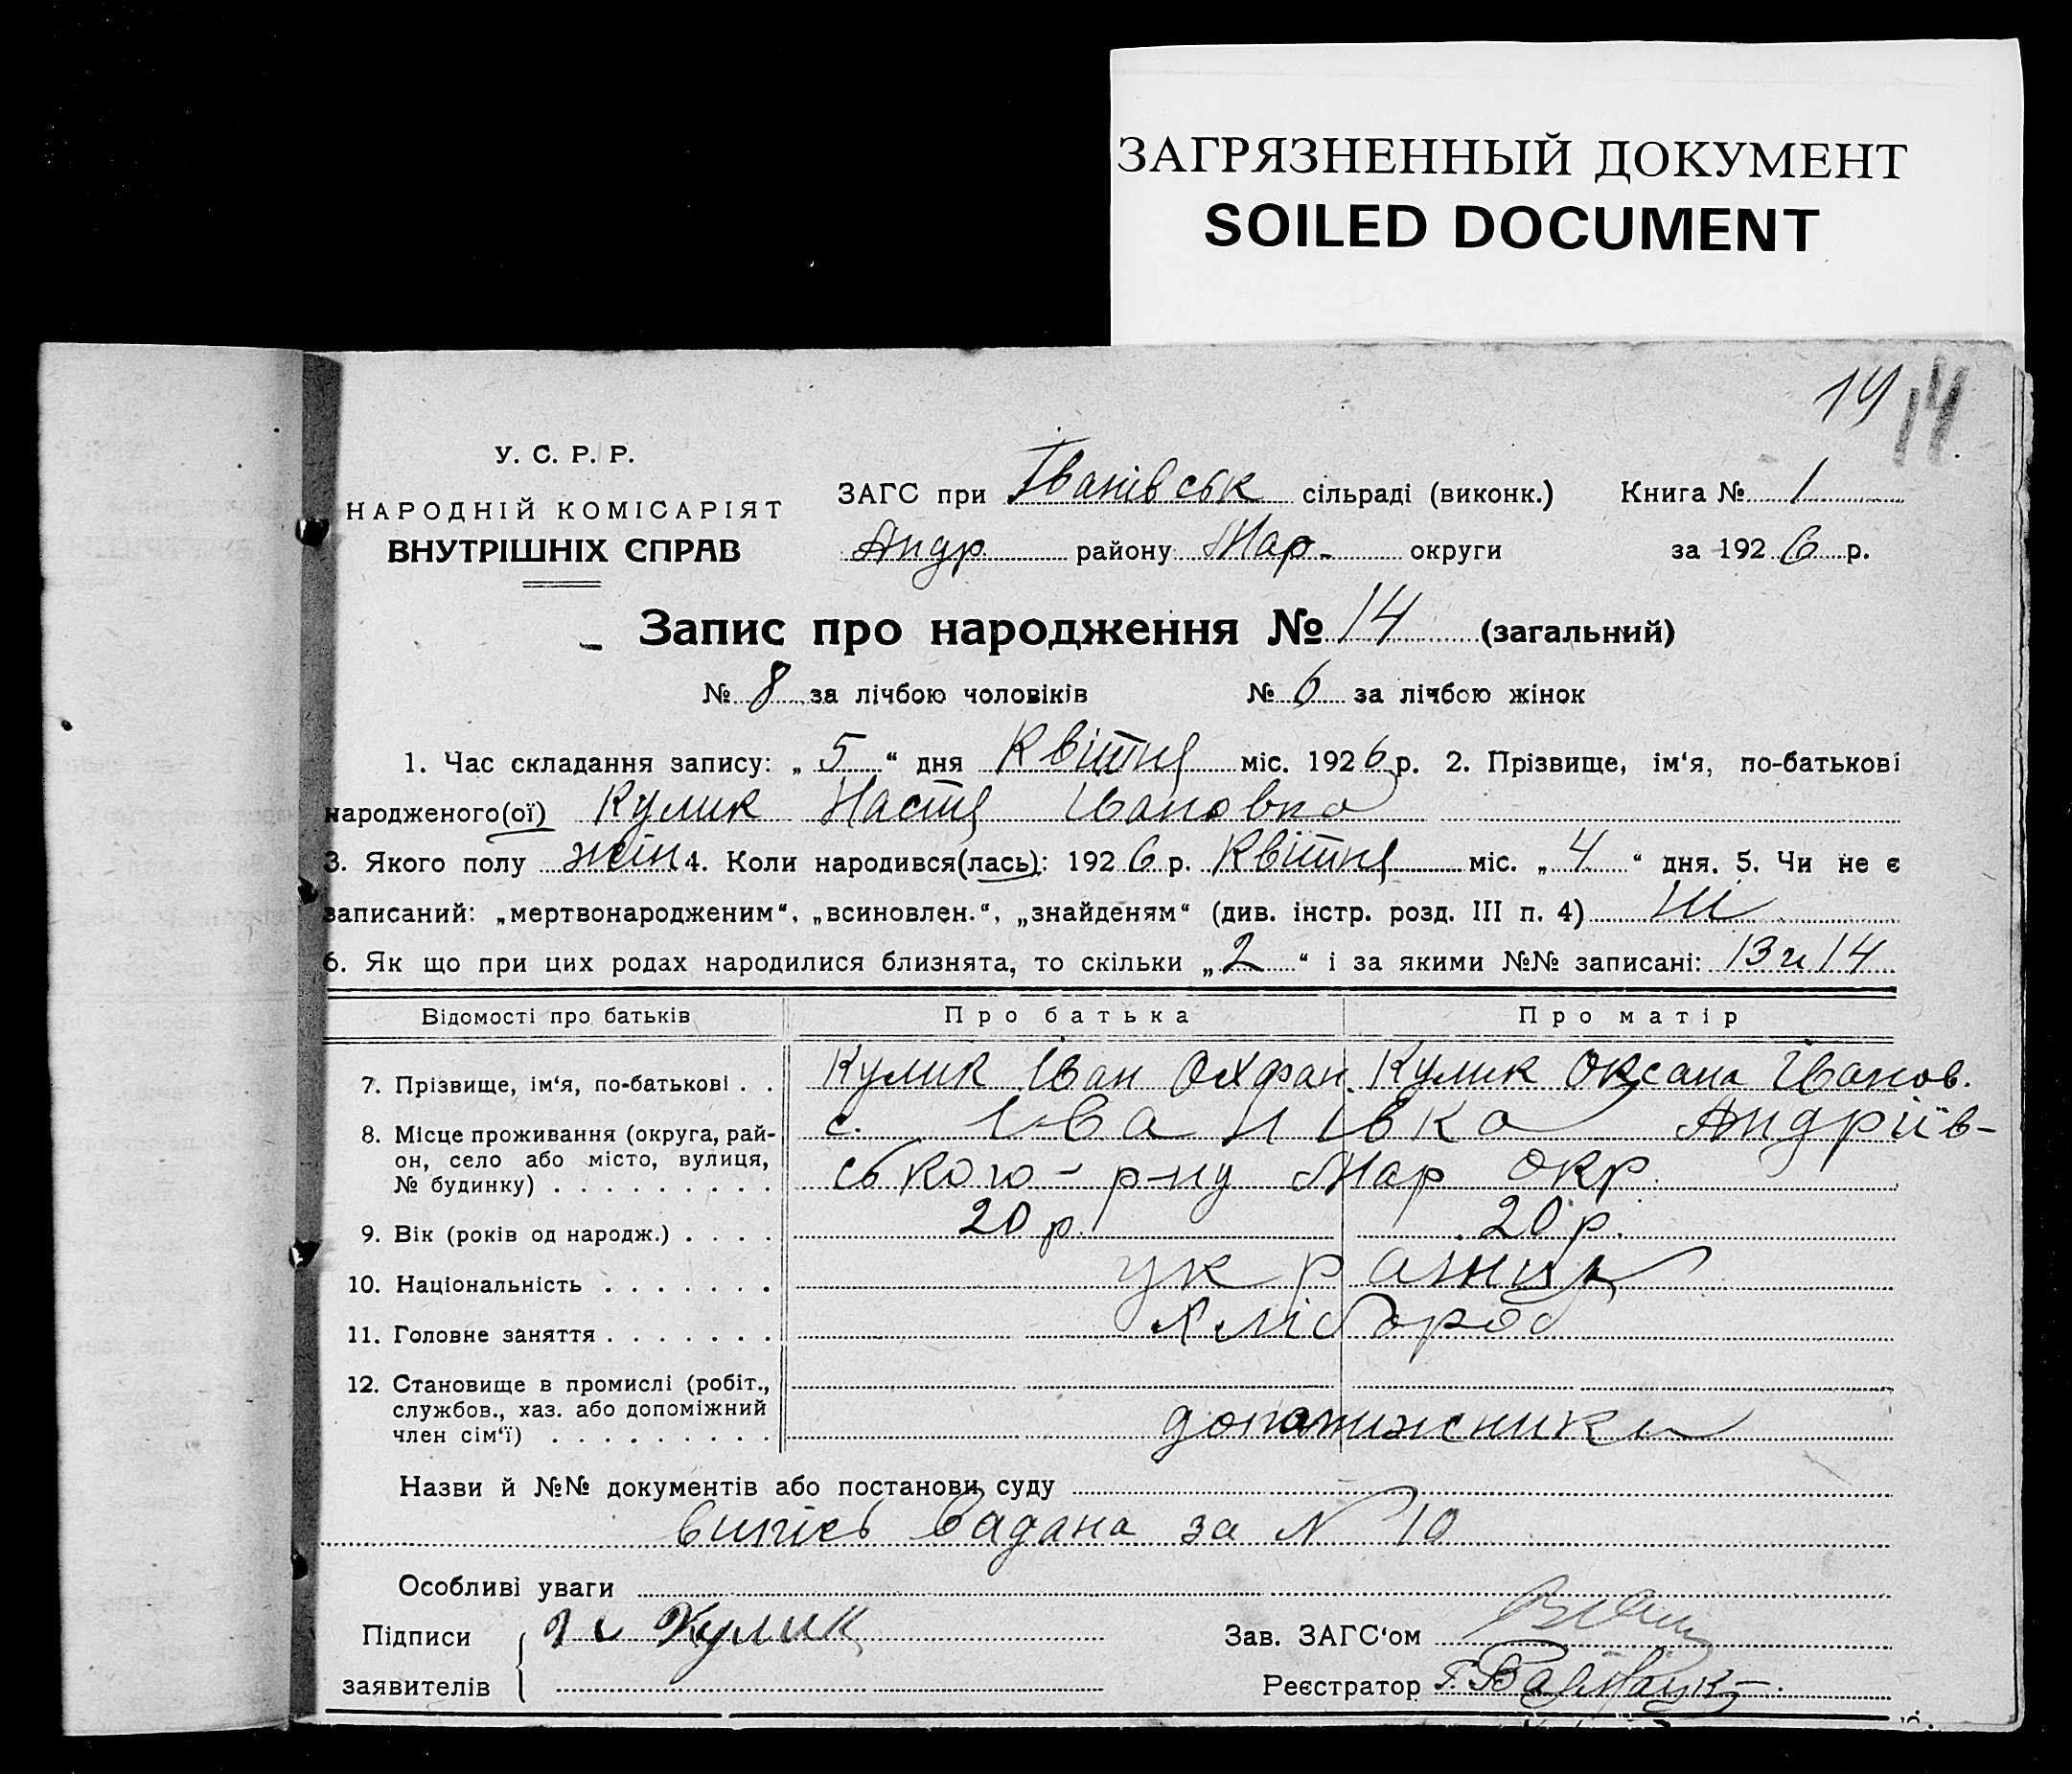 ЗАГРЯЗНЕННЫЙ ДОКУМЕНТ
SOILED DOCUMENT
14 14
У. С. Р. Р.
НАРОДНІЙ КОМІСАРІЯТ
ВНУТРІШНІХ СПРАВ
ЗАГС при Іванівськ сільраді (виконк.) Книга № 1
Андр району Мар. округи за 1926 р.
Запис про народження № 14 (загальний)
№ 8 за лічбою чоловіків № 6 за лічбою жінок
1. Час складання запису: „5“ дня Квітня міс. 1926 р. 2. Прізвище, ім‘я, по-батькові
народженого(ої) Кулик Настя Івановна
3. Якого полу жін 4. Коли народився(лась): 1926 р. Квітня міс. „4“ дня. 5. Чи не є
записаний: „мертвонародженим“, „всиновлен.“, „знайденям“ (див. інстр. розд. III п. 4) Ні
6. Як що при цих родах народилися близнята, то скільки „2“ і за якими №№ записані: 13 и 14
Відомості про батьків Про батька Про матір
7. Прізвище, ім‘я, по-батькові . . Кулик Іван Кулик Оксана Іванов.
8. Місце проживання (округа, рай-
он, село або місто, вулиця,
№ будинку) . . . . . . . . .
с. Іванівка Андріїв-
ського р-ну Мар окр.
9. Вік (років од народж.) . . . . 20 р. 20 р.
10. Національність . . . . . . .
11. Головне заняття . . . . . . . Хлібороб
12. Становище в промислі (робіт.,
службов., хаз. або допоміжний
член сім‘ї) . . . . . . . . .
допомижники
Назви й №№ документів або постанови суду
випись Видана за N 10
Особливі уваги
Підписи Кулик Зав. ЗАГС‘ом
заявителів Реєстратор